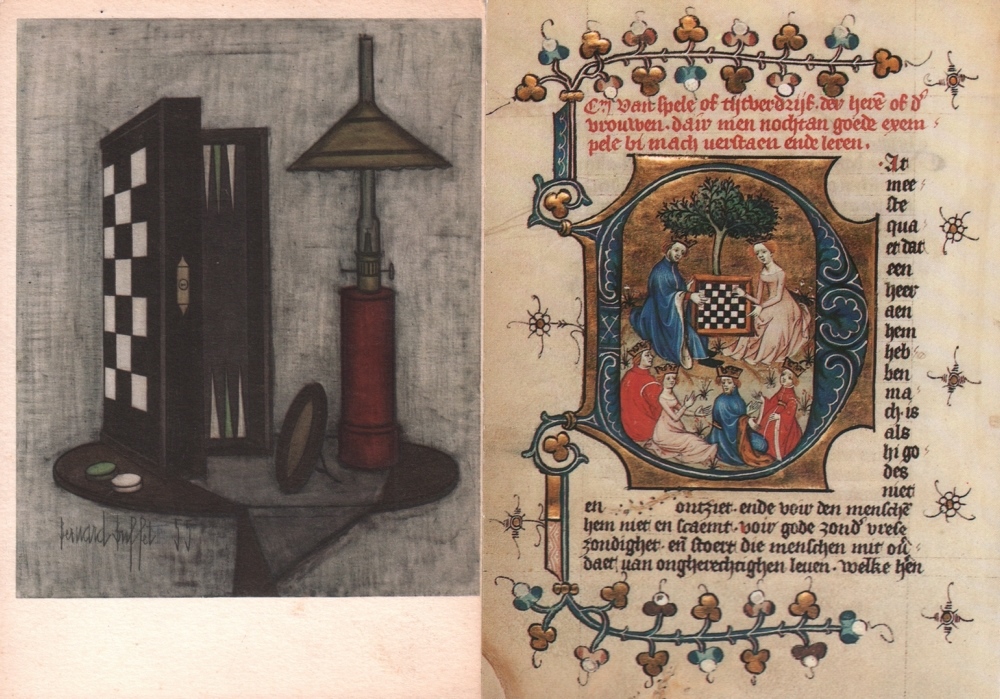 bernard buffet 55
Van spele of tijtverdrijf. der here of d'
vrouwen. dair men nochtan goede exem
pele bi mach verstaen ende leren.
At
mee
ste
qua
et dat
een
heer
aen
hem
heb
ben
ma
ch. is
als
hi go
des
niet
en ontziet. ende voir den mensche
hem niet en scaemt. voir gode zond' vrese
zondighet. en̄ stoert die menschen mit
daet van ongherechtighen leuen. welke hen